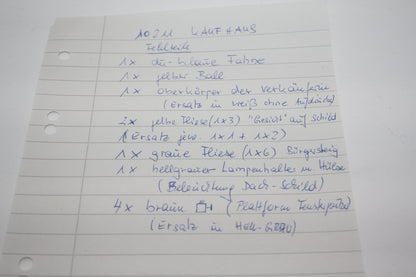 10211 KAUFHAUS
Fehlteile
1x du-blaue Fahne
1x gelber Ball
1x Oberkörper der Verkäuferin
(Ersatz in weiß ohne Aufdruck)
2x gelbe Fliese (1x3) "Gesicht" auf Schild
(Ersatz jew. 1x1 + 1x2)
1x graue Fliese (1x6) Bürgersteig
1x hellgrauer Lampenhalter in Hülse
(Beleuchtung Dach-Schild)
4x braun (Plattform
(Ersatz in HELL-GRAU)